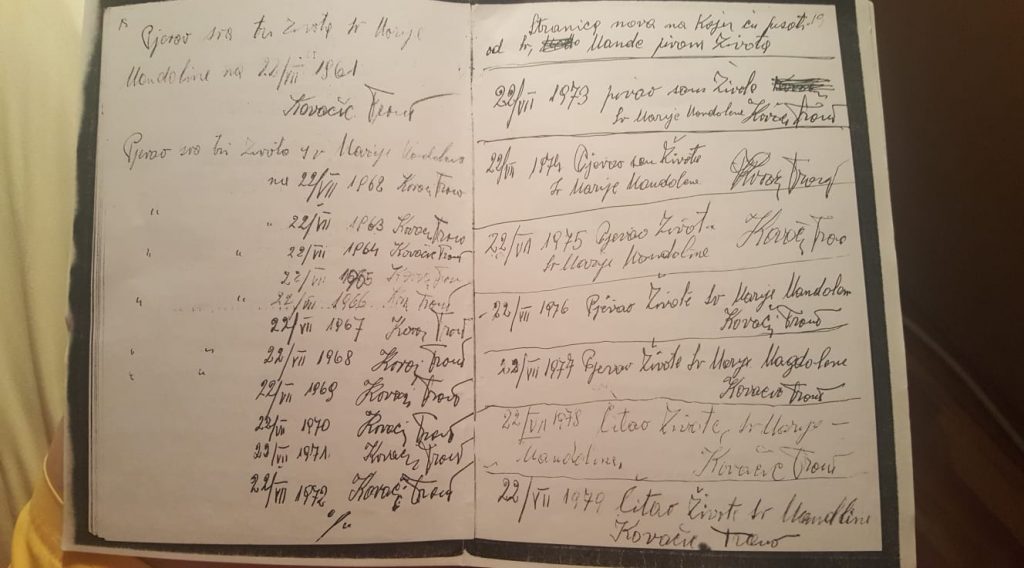 Pjevao sva tri Života sv Marije
Mandoline na 22/VII 1961
Kovačić Frane
Pjevao sva tri Života sv Marije Mandoline
na 22/VII 1962 Kovačić Frane
" " 22/VII 1963 Kovačić Frane
" " 22/VII 1964 Kovačić Frane
22/VII 1965
" " 22/VII 1966 Frane
22/VII 1967 Kovačić Frane
" " 22/VII 1968 Kovačić Frane
" " 22/VII 1969 Kovačić Frane
22/VII 1970 Kovačić Frane
22/VII 1971 Kovačić Frane
22/VII 1972 Kovačić Frane
Stranica nova na koju ću pisati 19
od Sv, Mande pivam Života
22/VII 1973 pivao sam Živote
Sv Marije Mandoline Kovačić Frane
22/VII 1974 Pjevao sam Života
Sv Marije Mandolene Kovačić Frane
22/VII 1975 Pjevao Život
Sv Marije Mandoline Kovačić Frane
22/VII 1976 Pjevao Živote Sv Marije Mandolene
Kovačić Frane
22/VII 1977 Pjevao Živote Sv Marije Magdolene
Kovacić Frane
22/VII 1978 Čitao Živote, Sv Marije –
Mandoline, Kovačić Frane
22/VII 1979 Čitao Živote Sv Mandline
Kovačić Frane